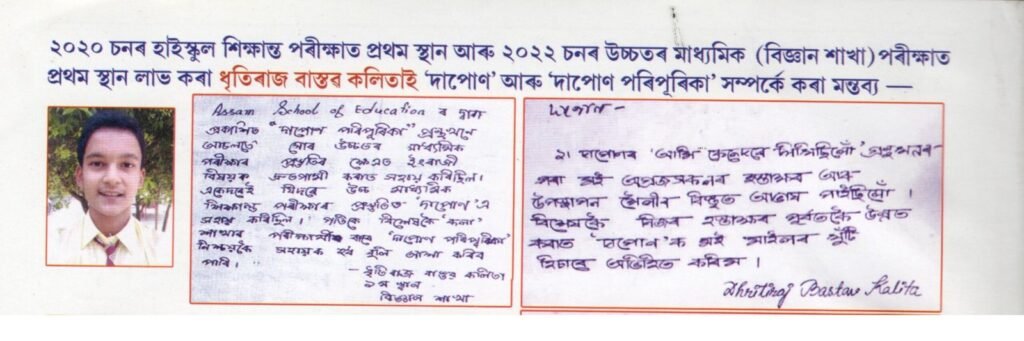 ২০২০ চনৰ হাইস্কুল শিক্ষান্ত পৰীক্ষাত প্ৰথম স্থান আৰু ২০২২ চনৰ উচ্চতৰ মাধ্যমিক (বিজ্ঞান শাখা) পৰীক্ষাত
প্ৰথম স্থান লাভ কৰা ধৃতিৰাজ বাস্তৱ কলিতাই ‘দাপোণ’ আৰু ‘দাপোণ পৰিপূৰিকা’ সম্পৰ্কে কৰা মন্তব্য —
Assam School of Education ৰ দ্বাৰা
প্ৰকাশিত “দাপোণ পৰিপূৰিকা” গ্ৰন্থখনে
মোৰ উচ্চতৰ মাধ্যমিক
পৰীক্ষাৰ প্ৰস্তুতিৰ ক্ষেত্ৰত ইংৰাজী
বিষয়ক দ্ৰুতগামী কৰাত সহায় কৰিছিল।
একেদৰেই উচ্চ মাধ্যমিক
শিক্ষান্ত পৰীক্ষাৰ প্ৰস্তুতিত ‘দাপোণ’এ
সহায় কৰিছিল। বিশেষকৈ ‘কলা’
শাখাৰ পৰীক্ষাৰ্থীৰ বাবে ‘দাপোণ পৰিপূৰিকা’
নিশ্চয়কৈ সহায়ক হ'ব বুলি আশা কৰিব
পাৰি।
– ধৃতিৰাজ বাস্তৱ কলিতা
১ম স্থান
বিজ্ঞান শাখা
দাপোণ –
২। দাপোণৰ ‘আমি কেনেদৰে লিখিছিলোঁ’
পৰা মই হস্তাক্ষৰ আৰু
উপস্থাপন শৈলীৰ বিস্তৃত আভাস পাইছিলোঁ।
বিশেষকৈ নিজৰ হস্তাক্ষৰ পূৰ্বতকৈ উন্নত
কৰাত ‘দাপোণ’ক মই মাইলৰ খুঁটি
হিচাবে অভিহিত কৰিম।
Dhritiraj Bastav Kalita